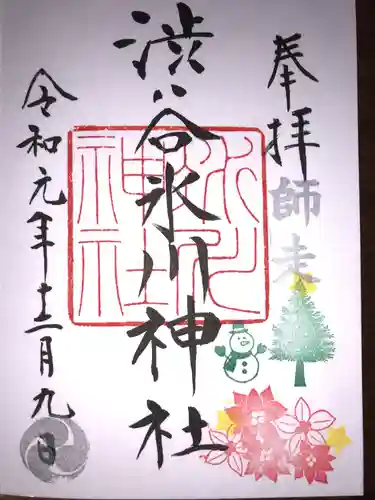 奉拝
師走
渋谷氷川神社
氷川神社
令和元年十二月九日